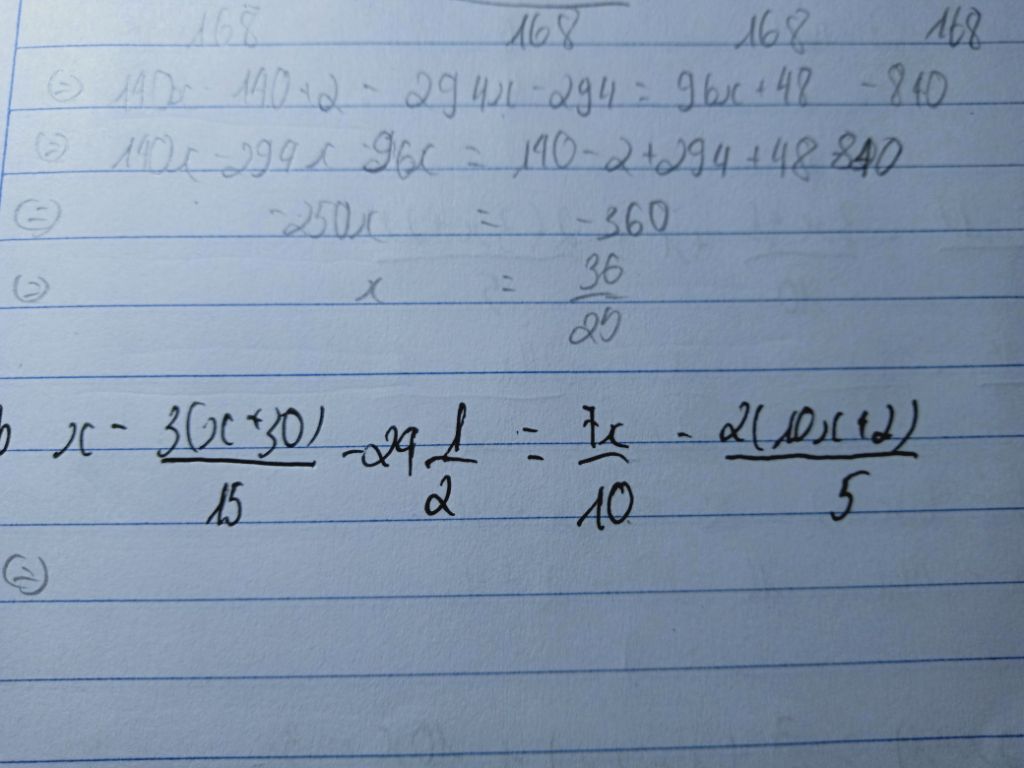 168 168 168 168
(=) 140x - 140 + 2 - 294x - 294 = 96x + 48 - 840
(=) 140x - 294x - 96x = 140 - 2 + 294 + 48 - 840
(=) -250x = -360
(=) x = 36/25
b x - 3(x+30)/15 - 29 1/2 = 7x/10 - 2(10x+2)/5
(=)